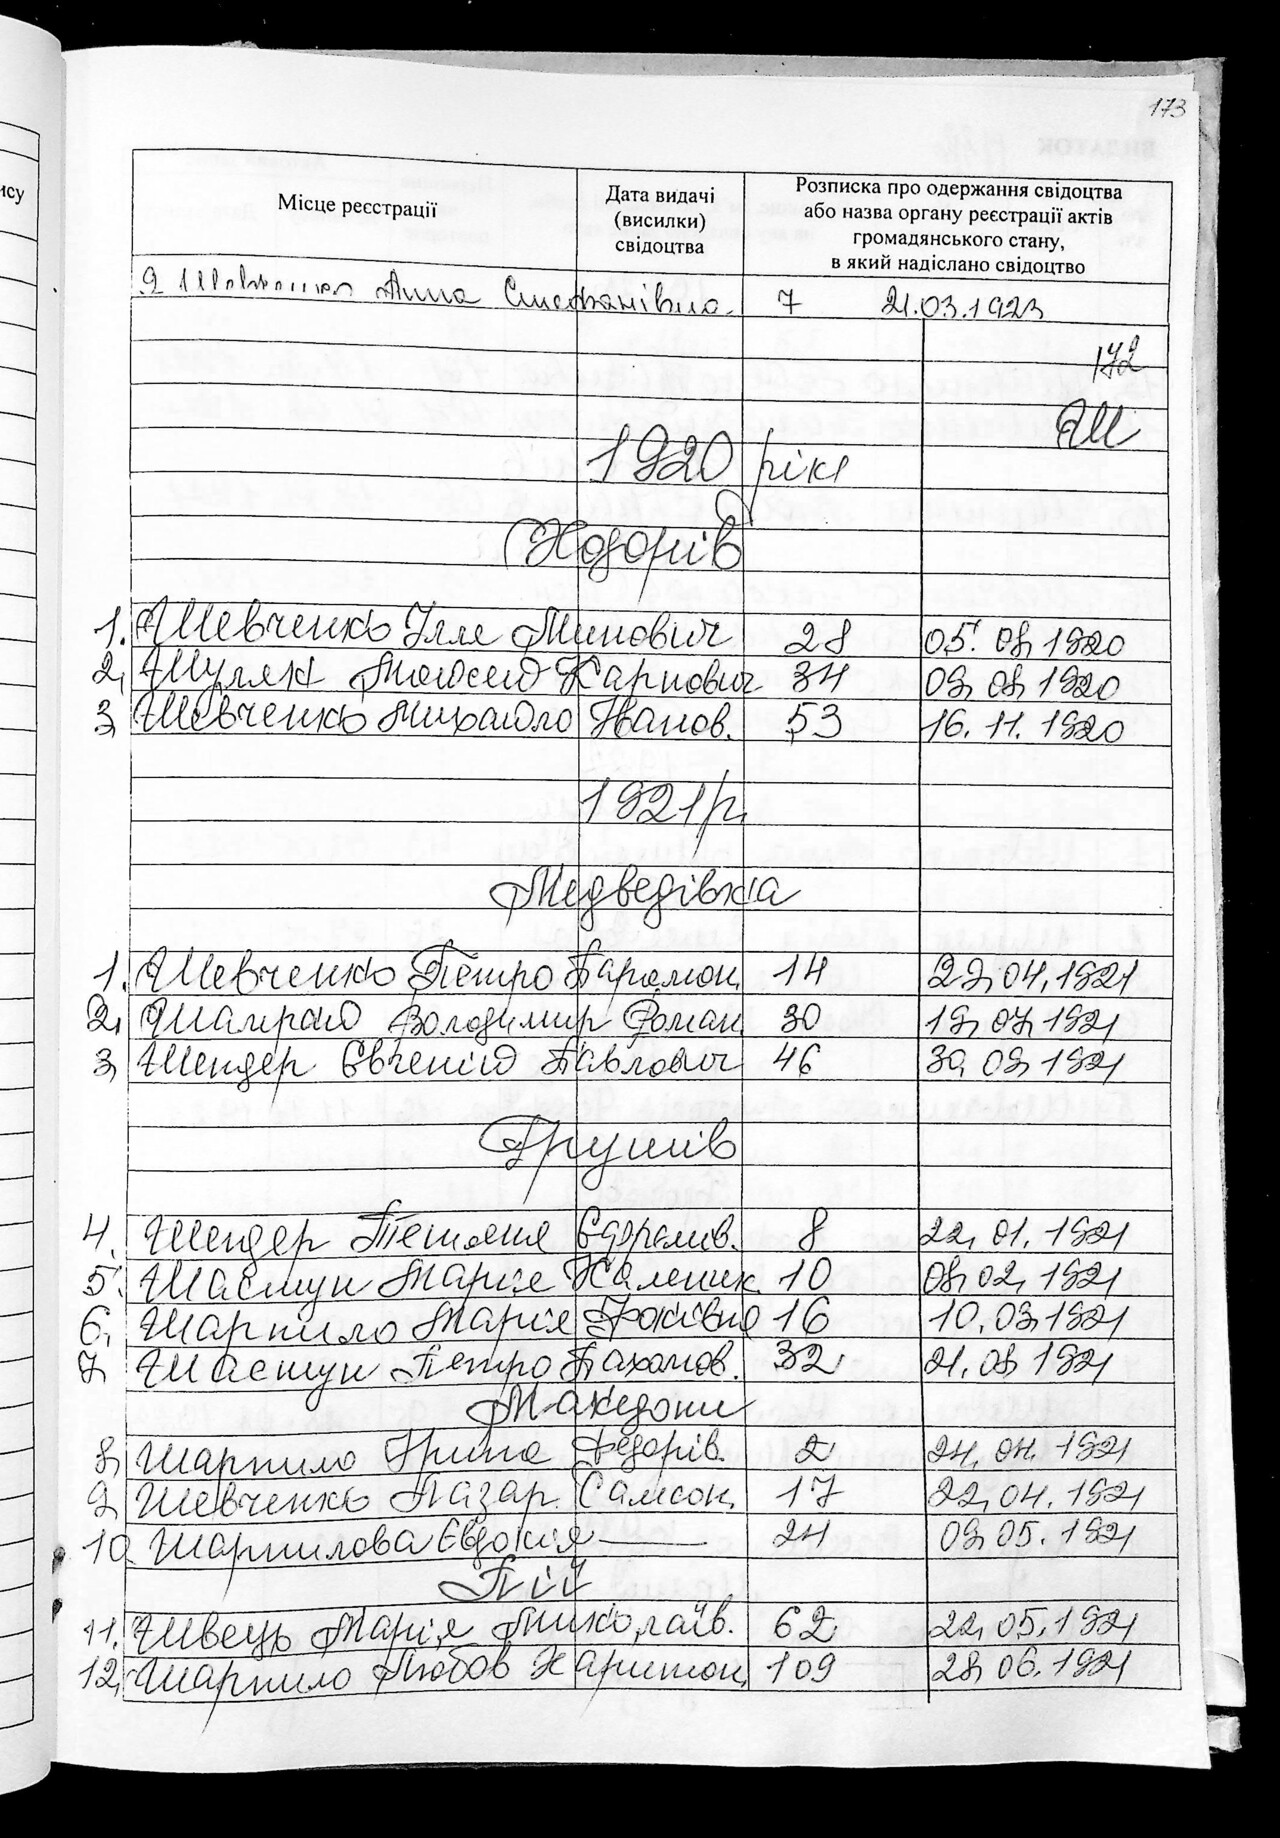 173
ису
Місце реєстрації
Дата видачі
(висилки)
свідоцтва
Розписка про одержання свідоцтва
або назва органу реєстрації актів
громадянського стану,
в який надіслано свідоцтво
9 Шевченко Анна Стефанівна 7 21.03.1923
172
1920 рік
Ходорів
1. Шевченко Ілля Минович 28 05.08.1920
2. Шуляк Мойсей Карпович 34 09.08.1920
3. Шевченко Михайло Іванов. 53 16.11.1920
1921 р.
Медведівка
1. Шевченко Петро Парамон. 14 29.04.1921
2. Шапрай Володимир Роман. 30 19.07.1921
3. Шендер Євгеній Павлович 46 30.09.1921
Грушів
4. Шендер Тетяна 8 22.01.1921
5. Шастун Марія 10 08.02.1921
6. Шарпило Марія Фоківна 16 10.03.1921
7. Шастун Петро Пахомов. 32 21.08.1921
Македони
8. Шарпило Ірина Федорів. 2 24.04.1921
9. Шевченко Лазар Самсон. 17 22.04.1921
10. Шарпилова Євдокія — 24 09.05.1921
Пії
11. Швець Марія Миколаїв. 62 22.05.1921
12. Шарпило Любов Харитон. 109 28.06.1921